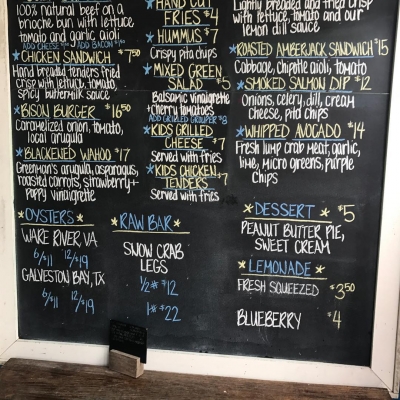 100% natural beef on a
brioche bun with lettuce
tomato and garlic aioli
ADD CHEESE ADD BACON
CHICKEN SANDWICH $7.50
Hand breaded tenders fried
crisp with lettuce, tomato,
spicy buttermilk sauce
BISON BURGER $16.50
Caramelized onion, tomato,
local arugula
BLACKENED WAHOO $17
Greenman's arugula, asparagus,
roasted carrots, strawberry +
poppy vinaigrette
OYSTERS
WARE RIVER, VA
6/$11 12/$19
GALVESTON BAY, TX
6/$11 12/$19
HAND CUT
FRIES $4
HUMMUS $7
Crispy pita chips
MIXED GREEN
SALAD $5
Balsamic Vinaigrette
+ Cherry tomatoes
ADD GRILLED GROUPER $8
KIDS GRILLED
CHEESE $7
Served with fries
KIDS CHICKEN
TENDERS $7
Served with fries
RAW BAR
SNOW CRAB
LEGS
1/2# $12
1# $22
Lightly breaded and fried crisp
with lettuce, tomato and our
lemon dill sauce
ROASTED AMBERJACK SANDWICH $15
Cabbage, chipotle aioli, tomato
SMOKED SALMON DIP $12
Onions, celery, dill, cream
cheese, pita chips
WHIPPED AVOCADO $14
Fresh lump crab meat, garlic,
lime, micro greens, purple
chips
DESSERT $5
PEANUT BUTTER PIE,
SWEET CREAM
LEMONADE
FRESH SQUEEZED $3.50
BLUEBERRY $4